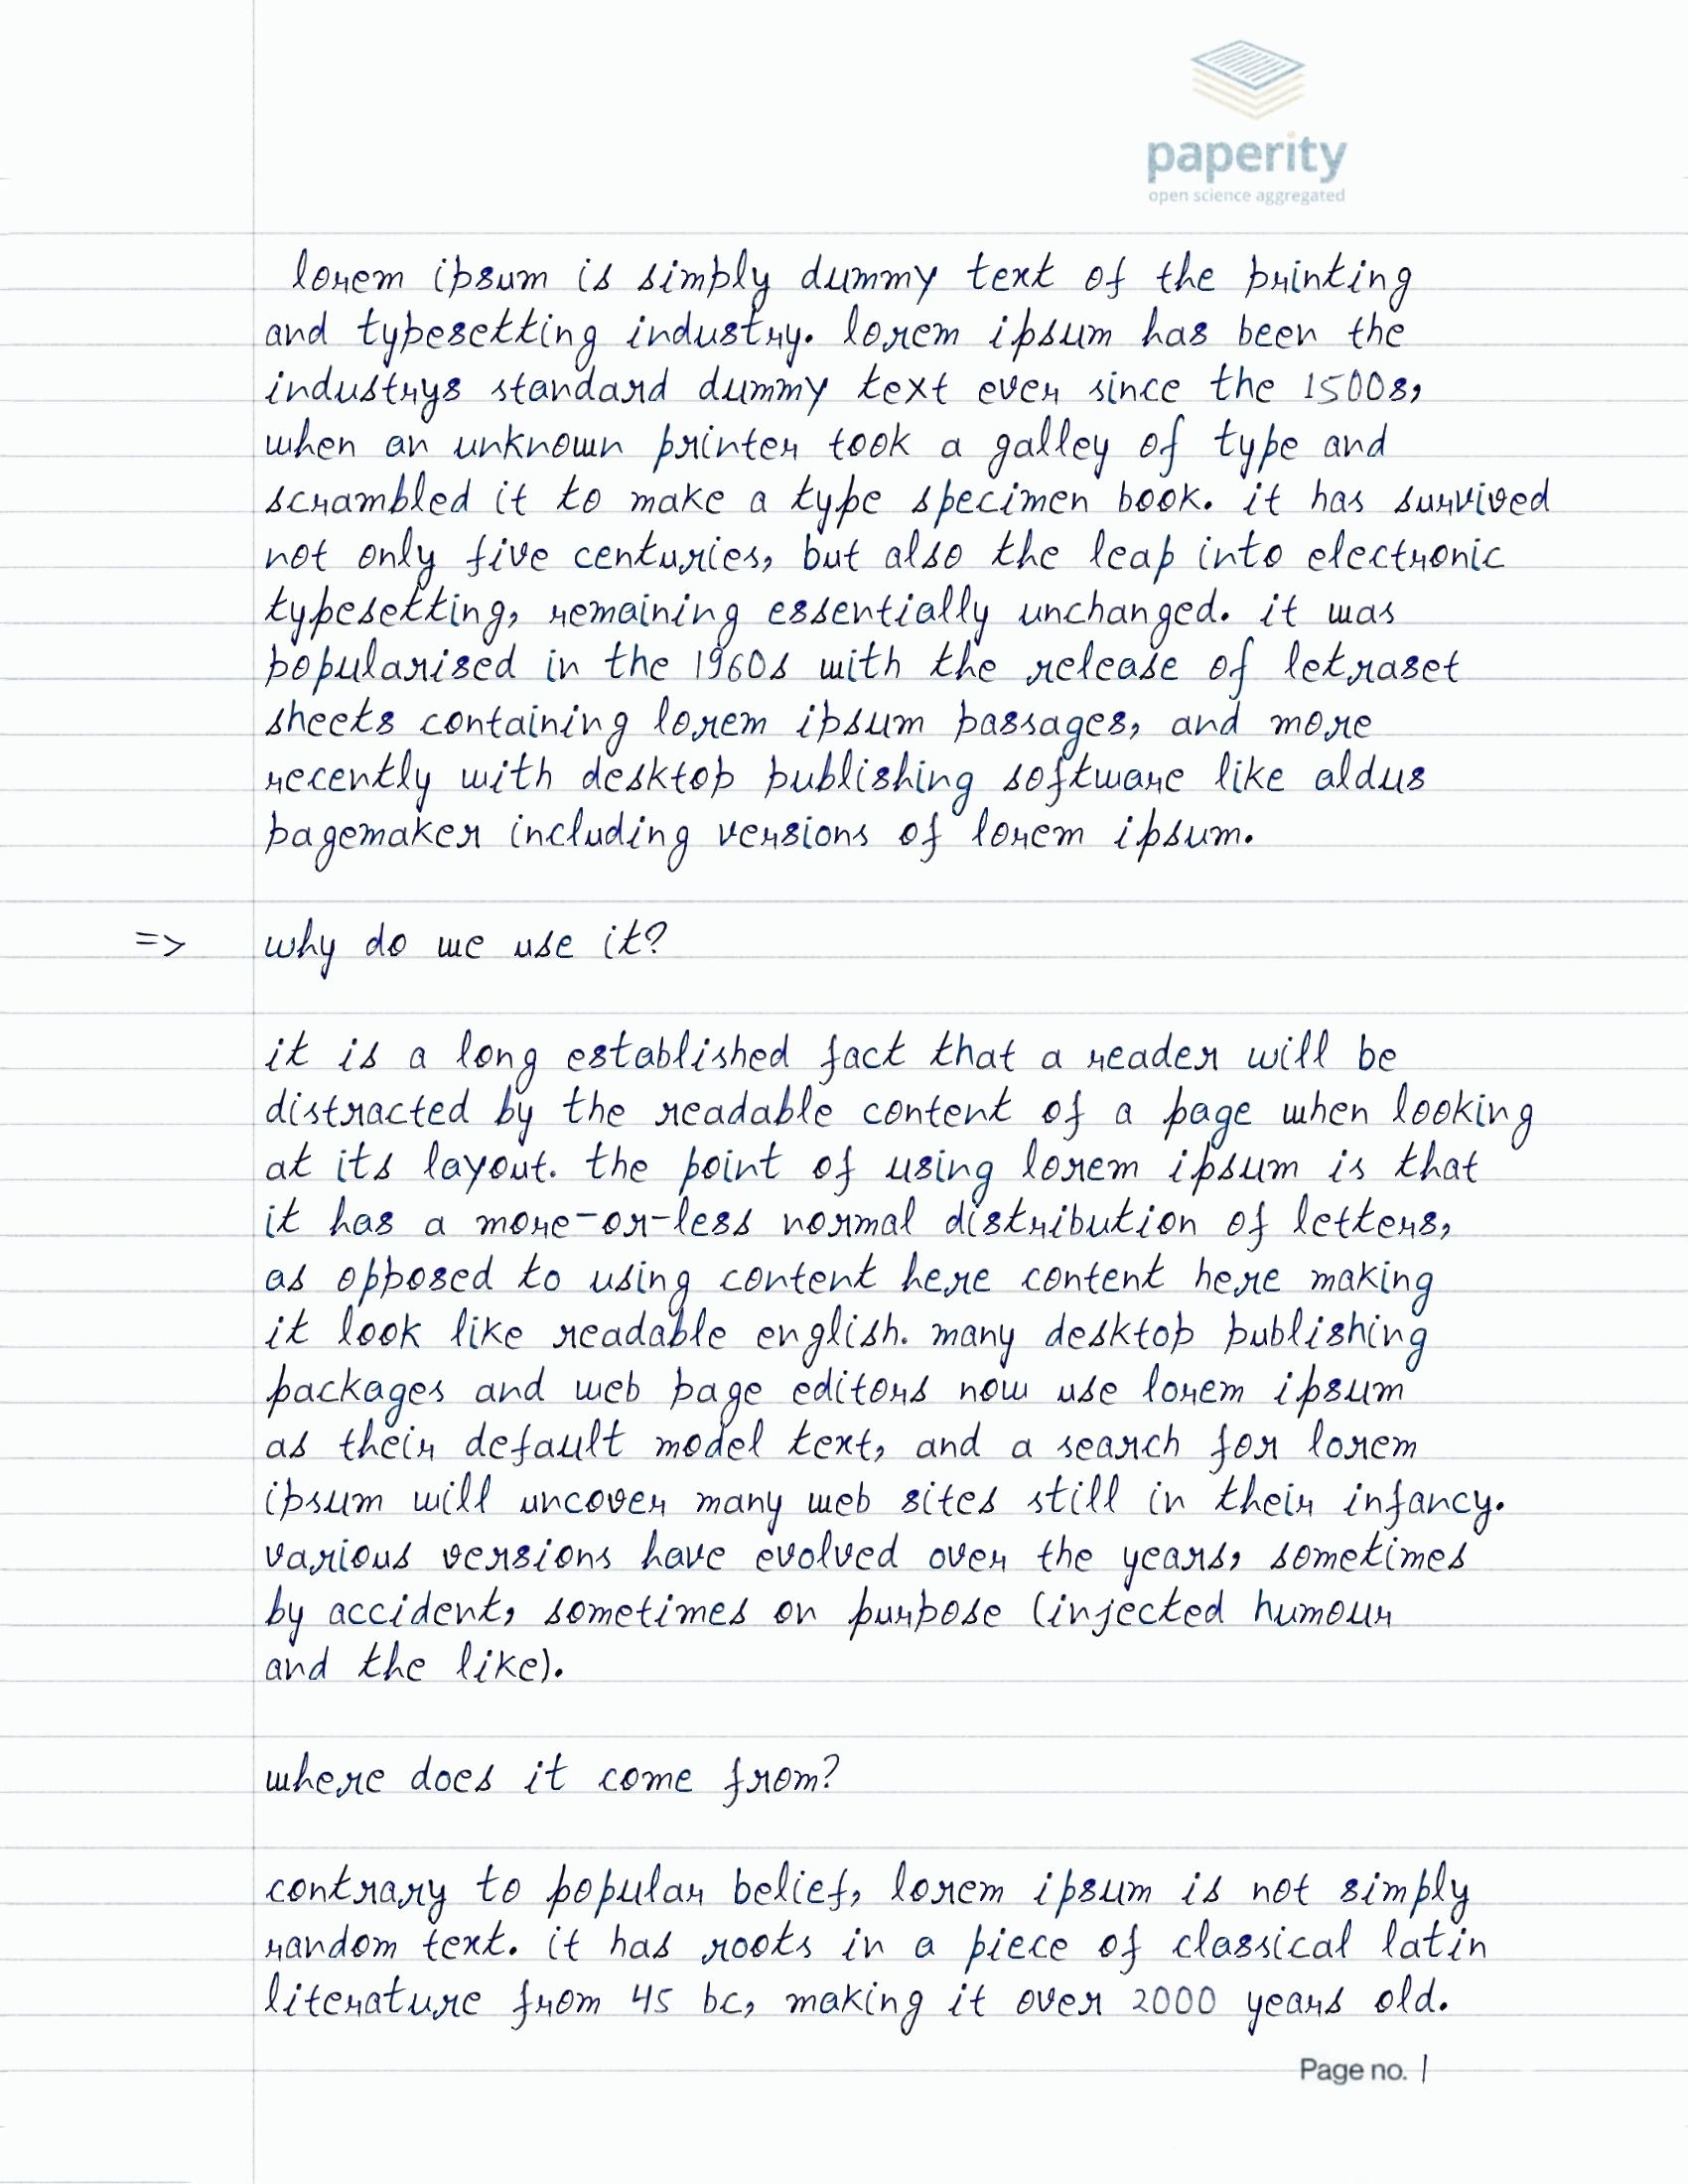 paperity
open science aggregated
lorem ipsum is simply dummy text of the printing
and typesetting industry. lorem ipsum has been the
industrys standard dummy text ever since the 1500s,
when an unknown printer took a galley of type and
scrambled it to make a type specimen book. it has survived
not only five centuries, but also the leap into electronic
typesetting, remaining essentially unchanged. it was
popularised in the 1960s with the release of letraset
sheets containing lorem ipsum passages, and more
recently with desktop publishing software like aldus
pagemaker including versions of lorem ipsum.
=> why do we use it?
it is a long established fact that a reader will be
distracted by the readable content of a page when looking
at its layout. the point of using lorem ipsum is that
it has a more-or-less normal distribution of letters,
as opposed to using content here content here making
it look like readable english. many desktop publishing
packages and web page editors now use lorem ipsum
as their default model text, and a search for lorem
ipsum will uncover many web sites still in their infancy.
various versions have evolved over the years, sometimes
by accident, sometimes on purpose (injected humour
and the like).
where does it come from?
contrary to popular belief, lorem ipsum is not simply
random text. it has roots in a piece of classical latin
literature from 45 bc, making it over 2000 years old.
Page no. 1